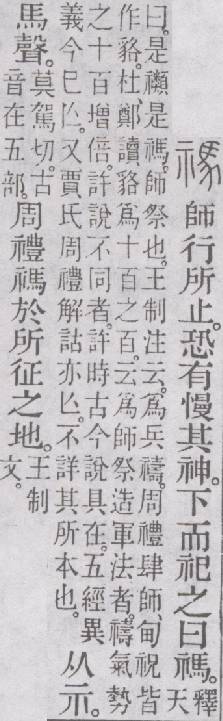 禡師行所止。恐有慢其神。下而祀之曰禡。釋天
曰。是禷是禡。師祭也。王制注云。爲兵禱。周禮肆師甸祝皆
作貉。杜鄭讀貉爲十百之百。云爲師祭造軍法者。禱氣勢
之十百增倍。許說不同者。許時古今說具在。五經異
義今巳亾。又賈氏周禮解詁亦亾。不詳其所本也。
从示。
馬聲。莫駕切。古音在五部。周禮禡於所征之地。王制文。